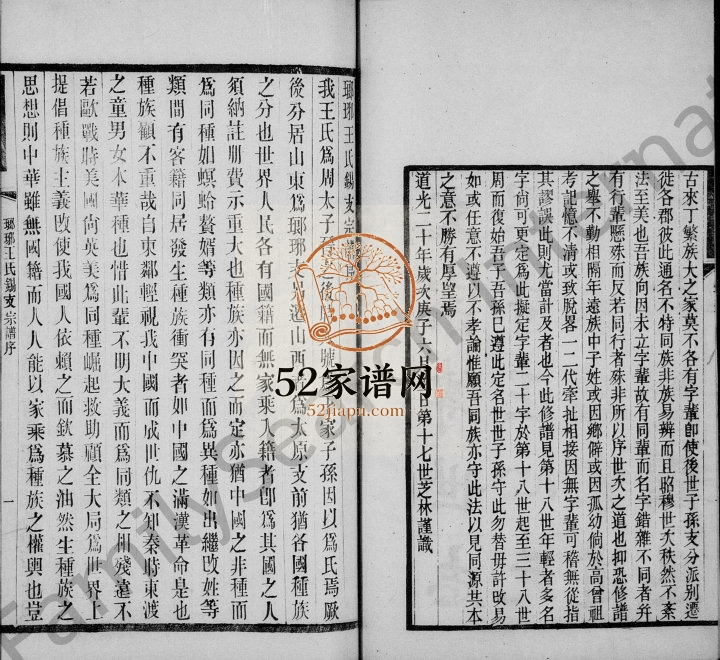 古來丁繁族大之家莫不各有字輩即使後世子孫支分派別遷
徙各郡彼此通名不特同族非族易辨而且昭穆世次秩然不紊
法至美也吾族向因未立字輩故有同輩而名字錯雜不同者幷
有行輩懸殊而反若同行者殊非所以序世次之道也抑恐修譜
之舉不動相隔年遠族中子姓或因鄉僻或因孤幼倘於高曾祖
考記憶不清或致脫畧一二代牽扯相接因無字輩可稽無從指
其謬誤此則尤當計及者也今此修譜見第十八世年輕者多名
字尙可更定爲此擬定字輩二十字於第十八世起至三十八世
周而復始吾子吾孫已遵此定名世世子孫守此勿替毋許改易
如或任意不遵以不孝論惟願吾同族亦守此法以見同源共本
之意不勝有厚望焉
道光二十年歲次庚子六月 第十七世芝林謹識
瑯琊王氏錫支宗譜序
我王氏爲周太子晉之後 家子孫因以爲氏焉厥
後分居山東爲瑯琊支 山西 爲太原支前猶各國種族
之分也世界人民各有國籍而無家乘入籍者卽爲其國之人
須納註册費示重大也種族亦因之而定亦猶中國之非種而
爲同種如螟蛉贅婿等類亦有同種而爲異種如出繼改姓等
類間有客籍同居發生種族衝突者如中國之滿漢革命是也
種族顧不重哉自東鄰輕視我中國而成世仇不知秦時東渡
之童男女本華種也惜此輩不明大義而爲同類之相殘遠不
若歐戰時美國尙英美爲同種崛起救助顧全大局爲世界上
提倡種族主義改使我國人依賴之而欽慕之油然生種族之
思想則中華雖無國籍而人人能以家乘爲種族之權輿也豈
瑯琊王氏錫支宗譜序
一
52家谱网
52jiapu.com
FamilySearch Internat